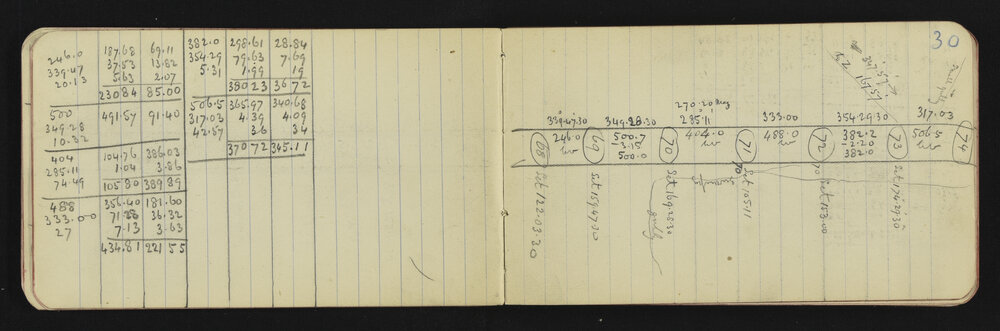 246.0 187.68 69.11
339.47 37.53 13.82
20.13 5.63 2.07
230 84 85.00
500 491.57 91.40
349.28
10.32
404 104.76 386.03
285.11 1.04 3.86
74.49 105 80 389 89
488 356.40 181.60
333.00 71.28 36.32
27 7.13 3.63
434.81 221 55
382.0 298.61 28.84
354.29 79.63 7.69
5.31 1.99 19
380 23 36 72
506.5 365.97 340.68
317.03 4.39 4.09
42.57 36 34
370 72 345.11
30
270.20
339.47.30 349.28.30 285.11 333.00 354.29.30 317.03
68 246.0 69 500.7 70 404.0 71 488.0 72 382.2 73 506.5 74
-3.18 -2.20
500.0 382.0
Set 122.03.30
Set 159.47.30
Set 169.28.30
gully
Set 105.11
Set 153.00
Set 174.29.30